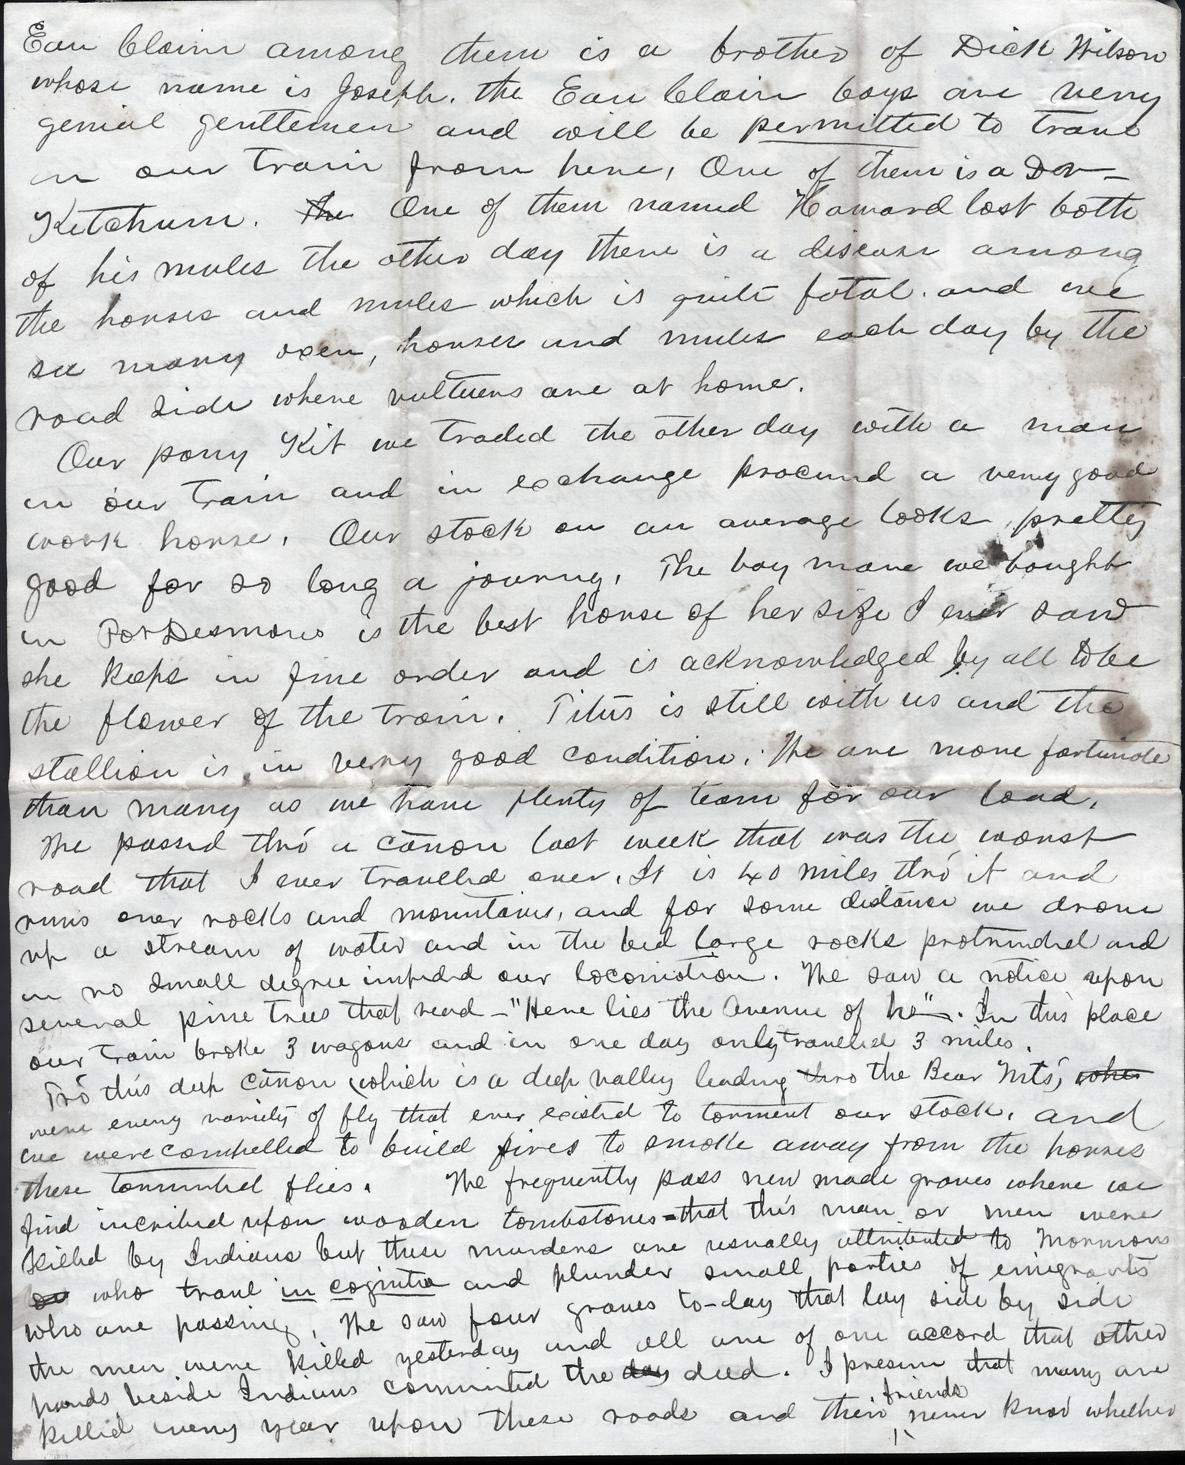 Eau Claire among them is a brother of Dick Wilson
whose name is Joseph. the Eau Claire boys are very
genial gentlemen and will be permitted to travel
in our train from here, One of them is a Dor-
Ketchum. The One of them named Haward lost both
of his mules the other day there is a disease among
the horses and mules which is quite fatal. and we
see many oxen, horses and mules each day by the
road side where vultures are at home.
Our pony Kit we traded the other day with a man
in our train and in exchange procured a very good
work horse. Our stock on an average looks pretty
good for so long a journey. The bay mare we bought
in Fort Desmoines is the best horse of her size I ever saw
she keeps in fine order and is acknowledged by all to be
the flower of the train. Titus is still with us and the
stallion is in very good condition. We are more fortunate
than many as we have plenty of team for our load.
We passed thró a cañon last week that was the worst
road that I ever travelled over. It is 40 miles thró it and
runs over rocks and mountains, and for some distance we drove
up a stream of water and in the bed large rocks protruded and
in no small degree impeded our locomotion. We saw a notice upon
several pine trees that read - "Here lies the Avenue of he—". In this place
our train broke 3 wagons and in one day only travelled 3 miles.
Tró this deep cañon (which is a deep valley leading thro the Bear Mts, wher
were every variety of fly that ever existed to torment our stock. and
we were compelled to build fires to smoke away from the horses
these tormented flies. We frequently pass new made graves where we
find incribed upon wooden tombstones = that this man or men were
killed by Indians but these murders are usually attributed to Mormons
who travel in cognito and plunder small parties of emigrants
who are passing. We saw four graves to-day that lay side by side
the men were killed yesterday and all are of one accord that other
hands beside Indians committed the day deed. I presum that many are
killed every year upon these roads and their friends never know whether